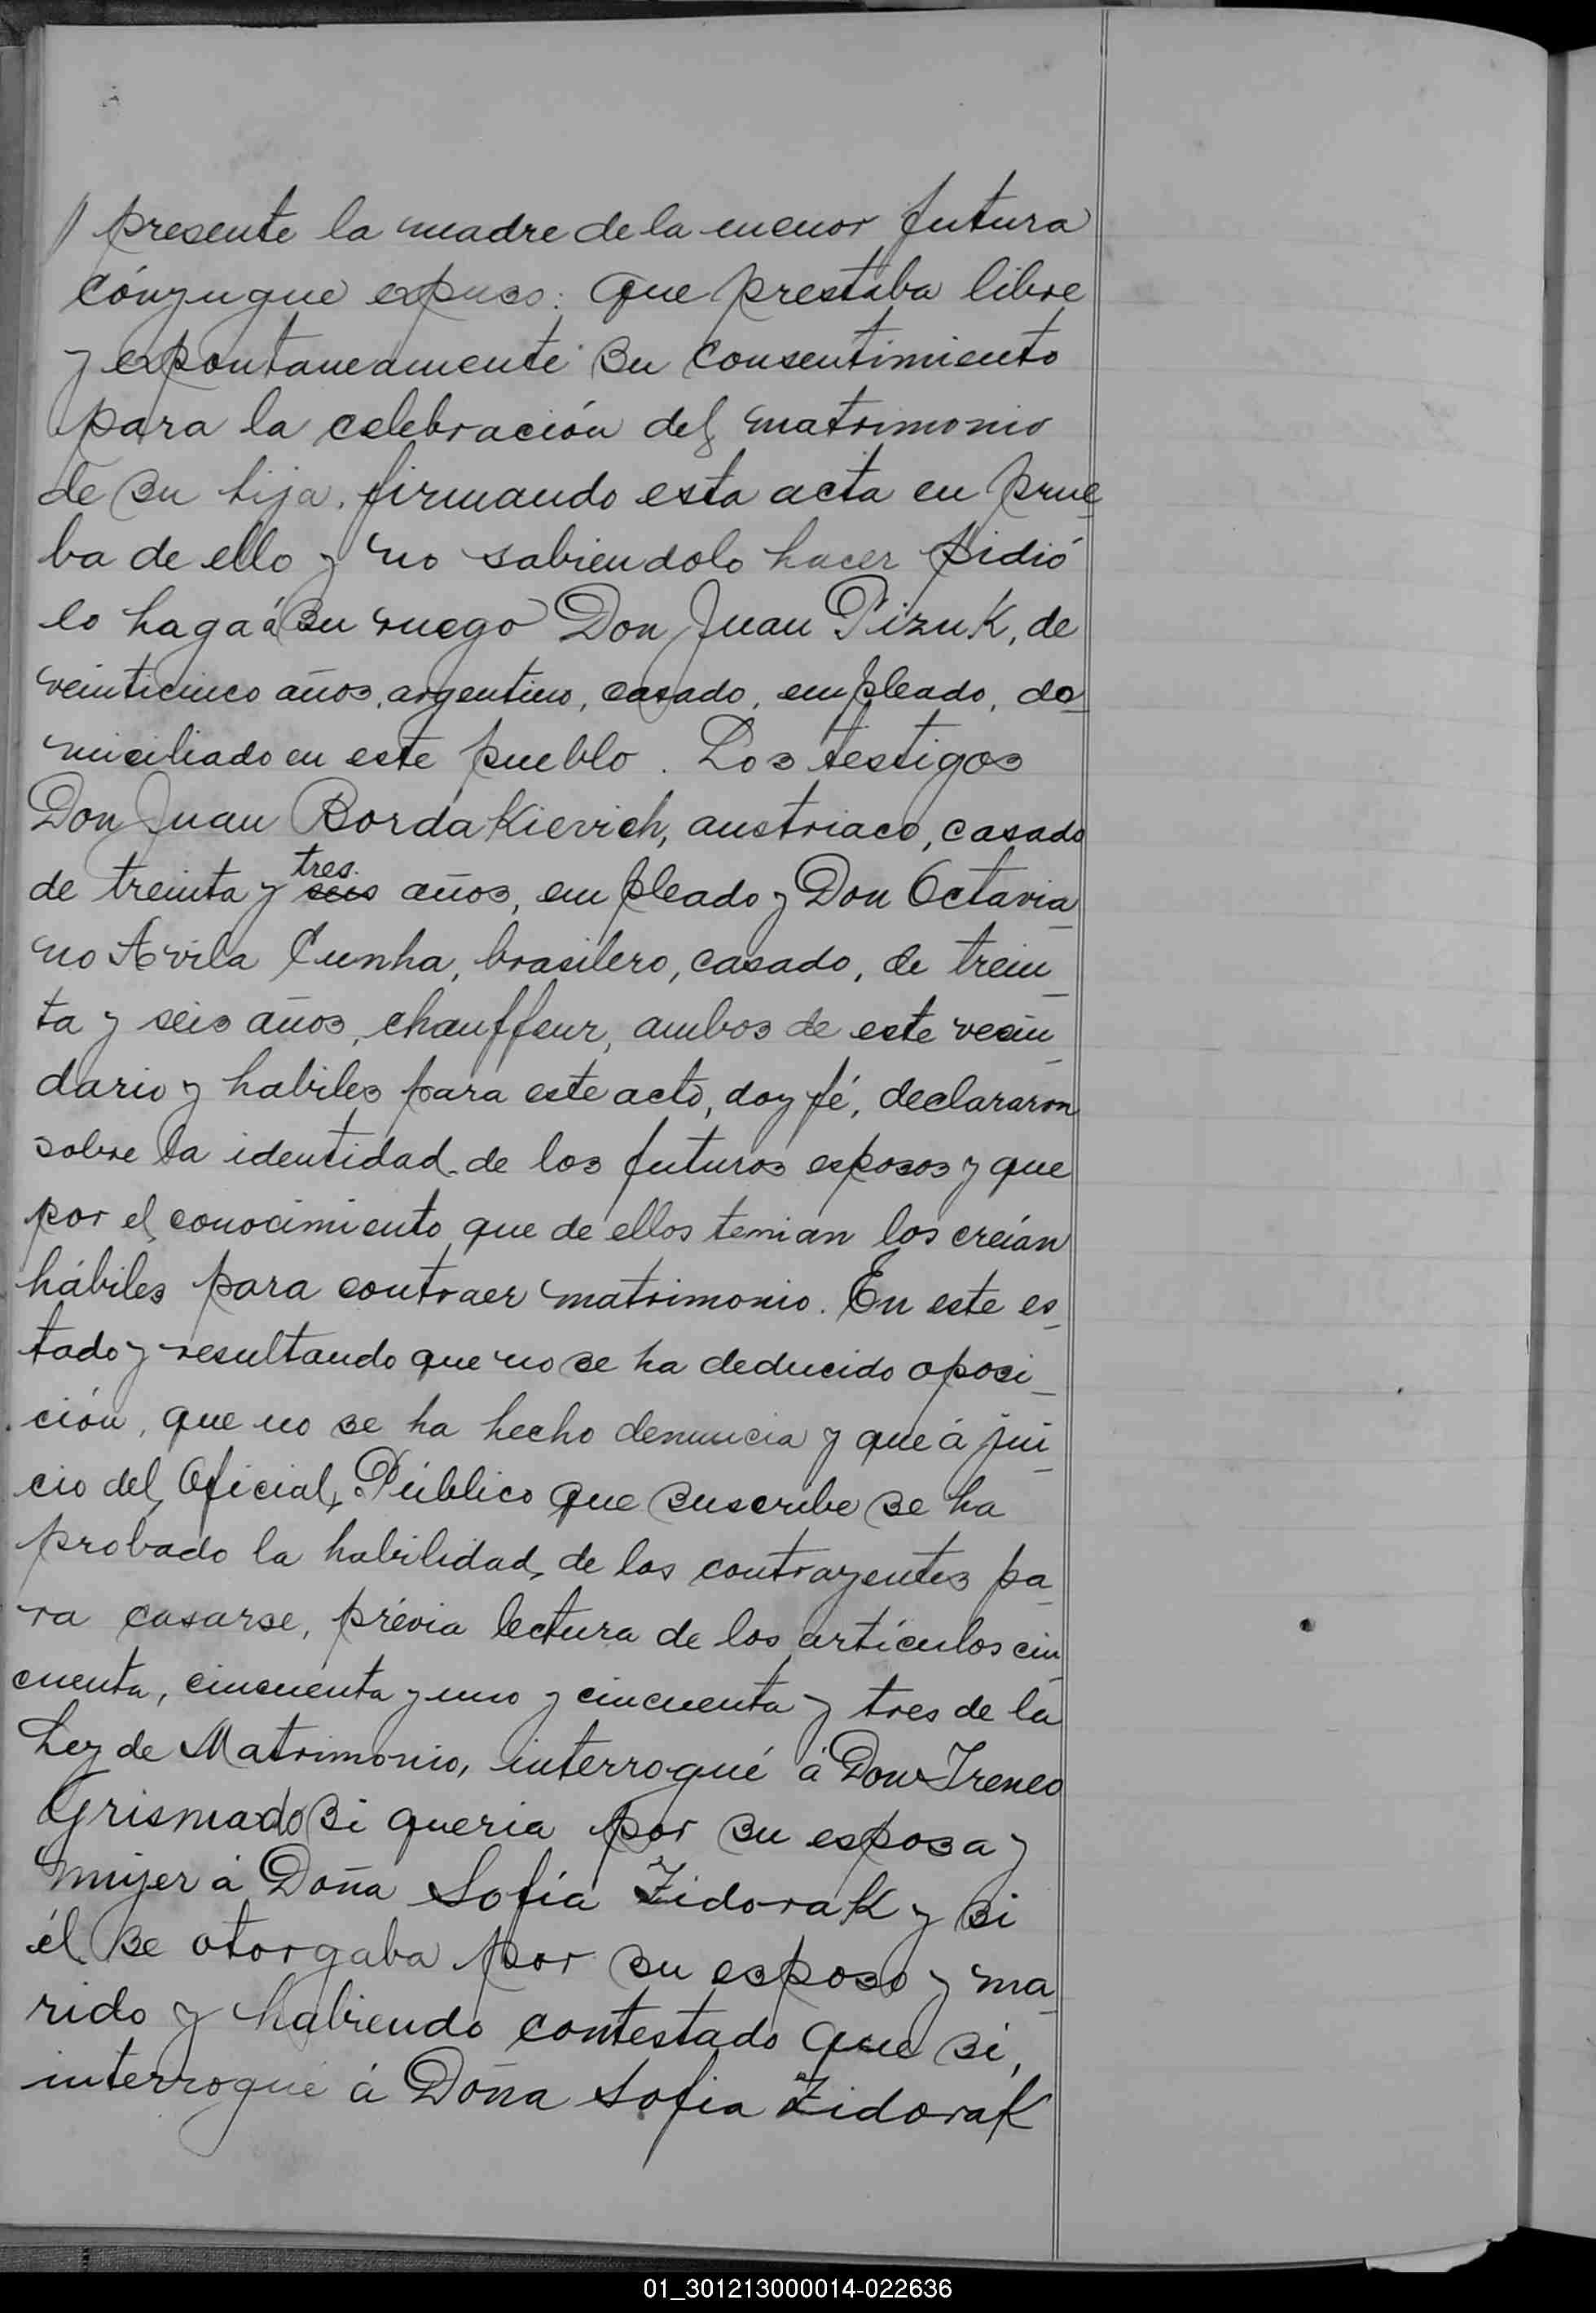 presente la madre de la menor futura
cónyugue expuso: que prestaba libre
y expontaneamente su consentimiento
para la celebración del matrimonio
de su hija, firmando esta acta en prue_
ba de ello y no sabiendolo hacer pidió
lo haga á su ruego Don Juan Pizuk, de
veinticinco años, argentino, casado, empleado, do_
miciliado en este pueblo. Los testigos
Don Juan Bordakievich, austriaco, casado
tres.
de treinta y seis años, empleado y Don Octavia_
no Avila Cunha, brasilero, casado, de trein_
ta y seis años, chauffeur, ambos de este vecin_
dario y habiles para este acto, doy fé, declararon
sobre la identidad de los futuros esposos y que
por el conocimiento que de ellos tenian los creían
hábiles para contraer matrimonio. En este es_
tado y resultando que no se ha deducido oposi_
ción, que no se ha hecho denuncia y que á jui_
cio del Oficial Público que suscribe se ha
probado la habilidad de los contrayentes pa_
ra casarse, prévia lectura de los artículos cin_
cuenta, cincuenta y uno y cincuenta y tres de la
Ley de Matrimonio, interrogué á Don Ireneo
Grismado si queria por su esposa y
mujer á Doña Sofía Zidorak y si
él se otorgaba por su esposo y ma_
rido y habiendo contestado que si,
interrogué á Doña Sofia Zidorak
01_301213000014-022636